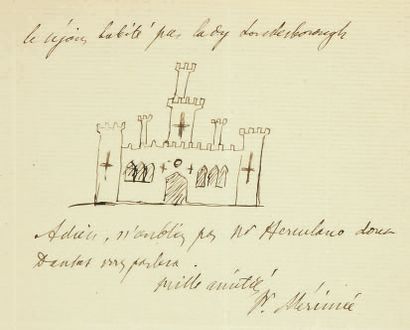 le séjour habité par lady Londesborough
Adieu, n'oubliez pas Mr Herculano dont
Dantas vous parlera.
mille amitiés
Pr Mérimée